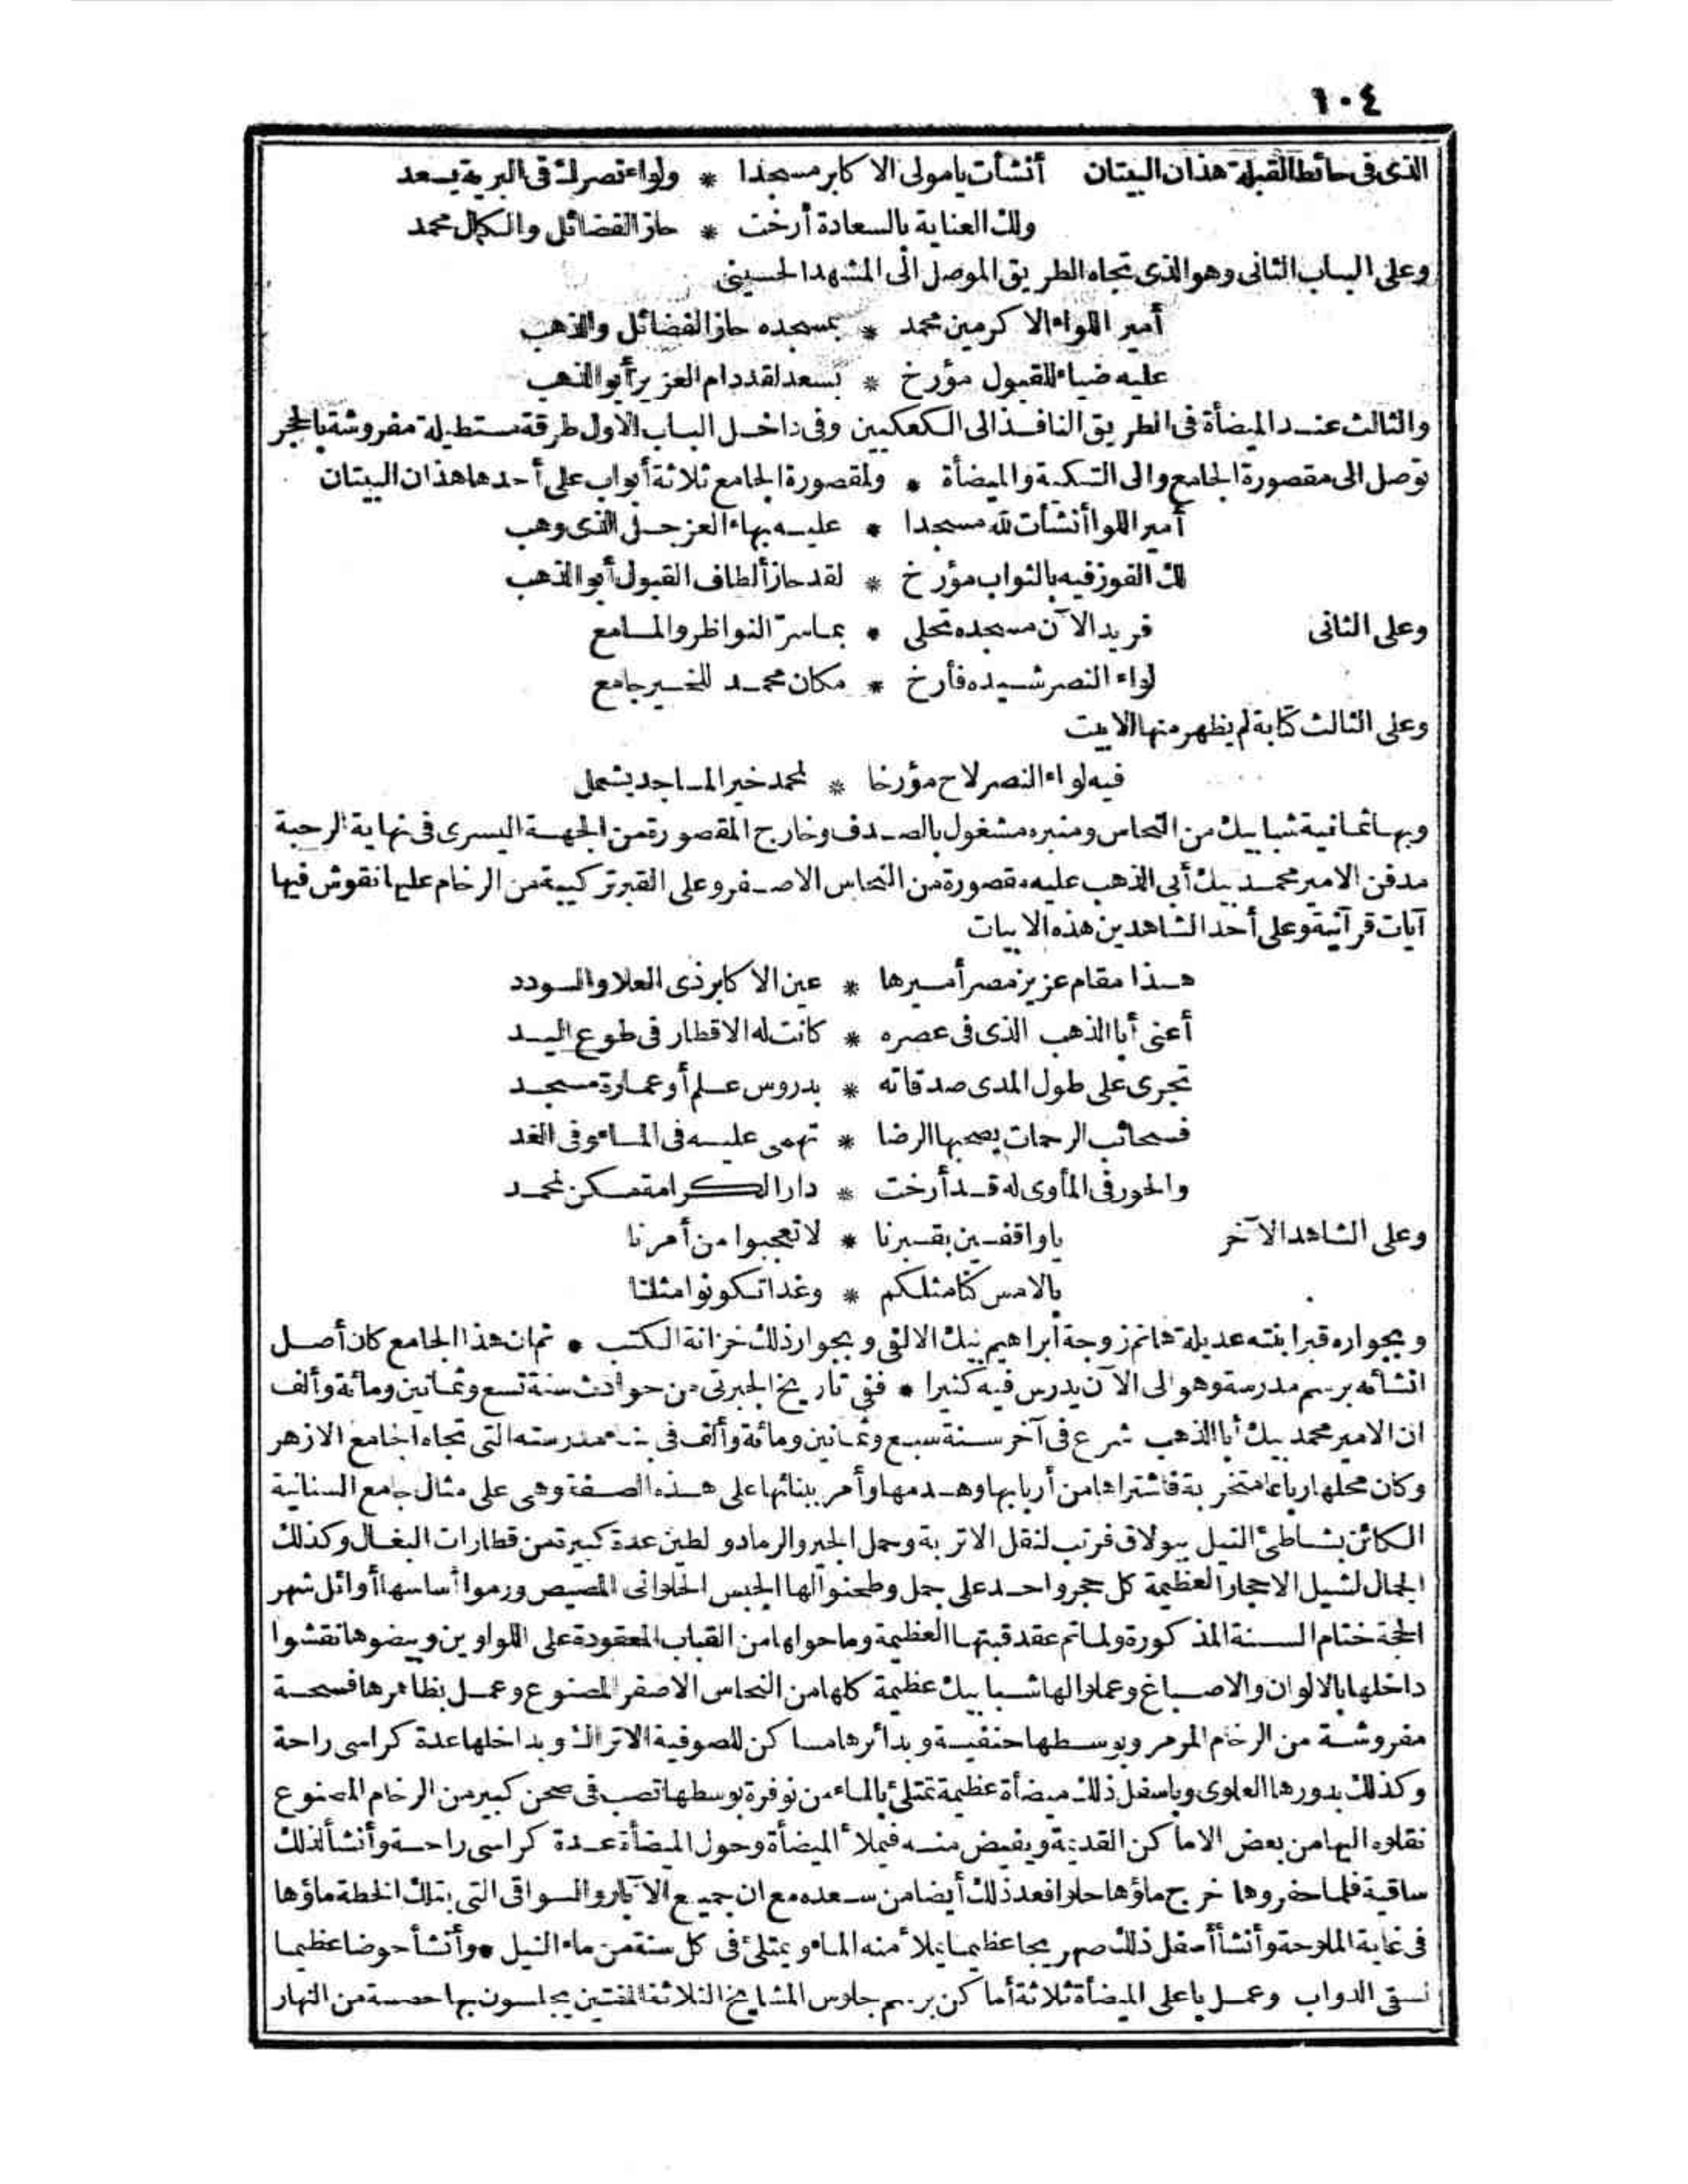 ١٠٤
الذى فى حائط القبلة هذان البيتان أنشأت يامولى الاكابر مسجدا * ولواء نصرك فى البرية يسعد
ولك العناية بالسعادة أرخت * حاز الفضائل والكمال محمد
وعلى الباب الثانى وهو الذى تجاه الطريق الموصل الى المشهد الحسينى
أمير اللواء الاكرمين محمد * بمسجده حاز الفضائل والذهب
عليه ضياء للقبول مؤرخ * بسعد لقد دام العزيز أبو الذهب
والثالث عند الميضأة فى الطريق النافذ الى الكعكيين وفى داخل الباب الاول طرقة مستطيلة مفروشة بالحجر
توصل الى مقصورة الجامع والى التكية والميضأة * ولمقصورة الجامع ثلاثة أبواب على أحدها هذان البيتان
أمير اللوا أنشأت لله مسجدا * عليه بهاء العز جل الذى وهب
لك الفوز فيه بالثواب مؤرخ * لقد حاز ألطاف القبول أبو الذهب
وعلى الثانى فريد الآن مسجده تحلى * بما سرّ النواظر والمسامع
لواء النصر شيده فأرخ * مكان محمد للخير جامع
وعلى الثالث كتابة لم يظهر منها الا بيت
فيه لواء النصر لاح مؤرخا * لمحمد خير المساجد يشمل
وبها ثمانية شبابيك من النحاس ومنبره مشغول بالصدف وخارج المقصورة من الجهة اليسرى فى نهاية الرحبة
مدفن الامير محمد بيك أبى الذهب عليه مقصورة من النحاس الاصفر وعلى القبر تركيبة من الرخام عليها نقوش فيها
آيات قرآنية وعلى أحد الشاهدين هذه الابيات
هذا مقام عزيز مصر أميرها * عين الاكابر ذى العلا والسودد
أعنى أبا الذهب الذى فى عصره * كانت له الاقطار فى طوع اليد
تجرى على طول المدى صدقاته * بدروس علم أو عمارة مسجد
فسحائب الرحمات يصحبها الرضا * تهمى عليه فى المساء وفى الغد
والحور فى المأوى له قد أرخت * دار الكرامة مسكن لمحمد
وعلى الشاهد الآخر ياواقفين بقبرنا * لا تعجبوا من أمرنا
بالامس كنا مثلكم * وغدا تكونوا مثلنا
وبجواره قبر ابنته عديلة هانم زوجة ابراهيم بيك الالفى وبجوار ذلك خزانة الكتب * ثم ان هذا الجامع كان أصل
انشائه برسم مدرسة وهو الى الآن يدرس فيه كثيرا * ففى تاريخ الجبرتى من حوادث سنة تسع وثمانين ومائة وألف
ان الامير محمد بيك أبا الذهب شرع فى آخر سنة سبع وثمانين ومائة وألف فى بناء مدرسته التى تجاه الجامع الازهر
وكان محلها رباعا متخربة فاشتراها من أربابها وهدمها وأمر ببنائها على هذه الصفة وهى على مثال جامع السنانية
الكائن بشاطئ النيل ببولاق فرتب لنقل الاتربة وحمل الجير والرماد والطين عدة كبيرة من قطارات البغال وكذلك
الجمال لشيل الاحجار العظيمة كل حجر واحد على جمل وطحنوا لها الجبس الحلوانى المصيص ورموا أساسها أوائل شهر
الحجة ختام السنة المذكورة ولما تم عقد قبتها العظيمة وما حولها من القباب المعقودة على اللواوين وبيضوها نقشوا
داخلها بالالوان والاصباغ وعملوا لها شبابيك عظيمة كلها من النحاس الاصفر المصنوع وعمل بظاهرها فسحة
مفروشة من الرخام المرمر وبوسطها حنفية وبدائرها مساكن للصوفية الاتراك وبداخلها عدة كراسى راحة
وكذلك بدورها العلوى وباسفل ذلك ميضأة عظيمة تمتلئ بالماء من نوفرة بوسطها تصب فى صحن كبير من الرخام المصنوع
نقلوه اليها من بعض الاماكن القديمة ويفيض منه فيملأ الميضأة وحول الميضأة عدة كراسى راحة وأنشأ لذلك
ساقية فلما حفروها خرج ماؤها حلوا فعد ذلك أيضا من سعده مع ان جميع الآبار والسواقى التى بتلك الخطة ماؤها
فى غاية الملوحة وأنشأ أسفل ذلك صهريجا عظيما يملأ منه الماء ويمتلئ فى كل سنة من ماء النيل * وأنشأ حوضا عظيما
لسقى الدواب وعمل باعلى الميضأة ثلاثة أماكن برسم جلوس المشايخ الثلاثة المفتين يجلسون بها حصة من النهار